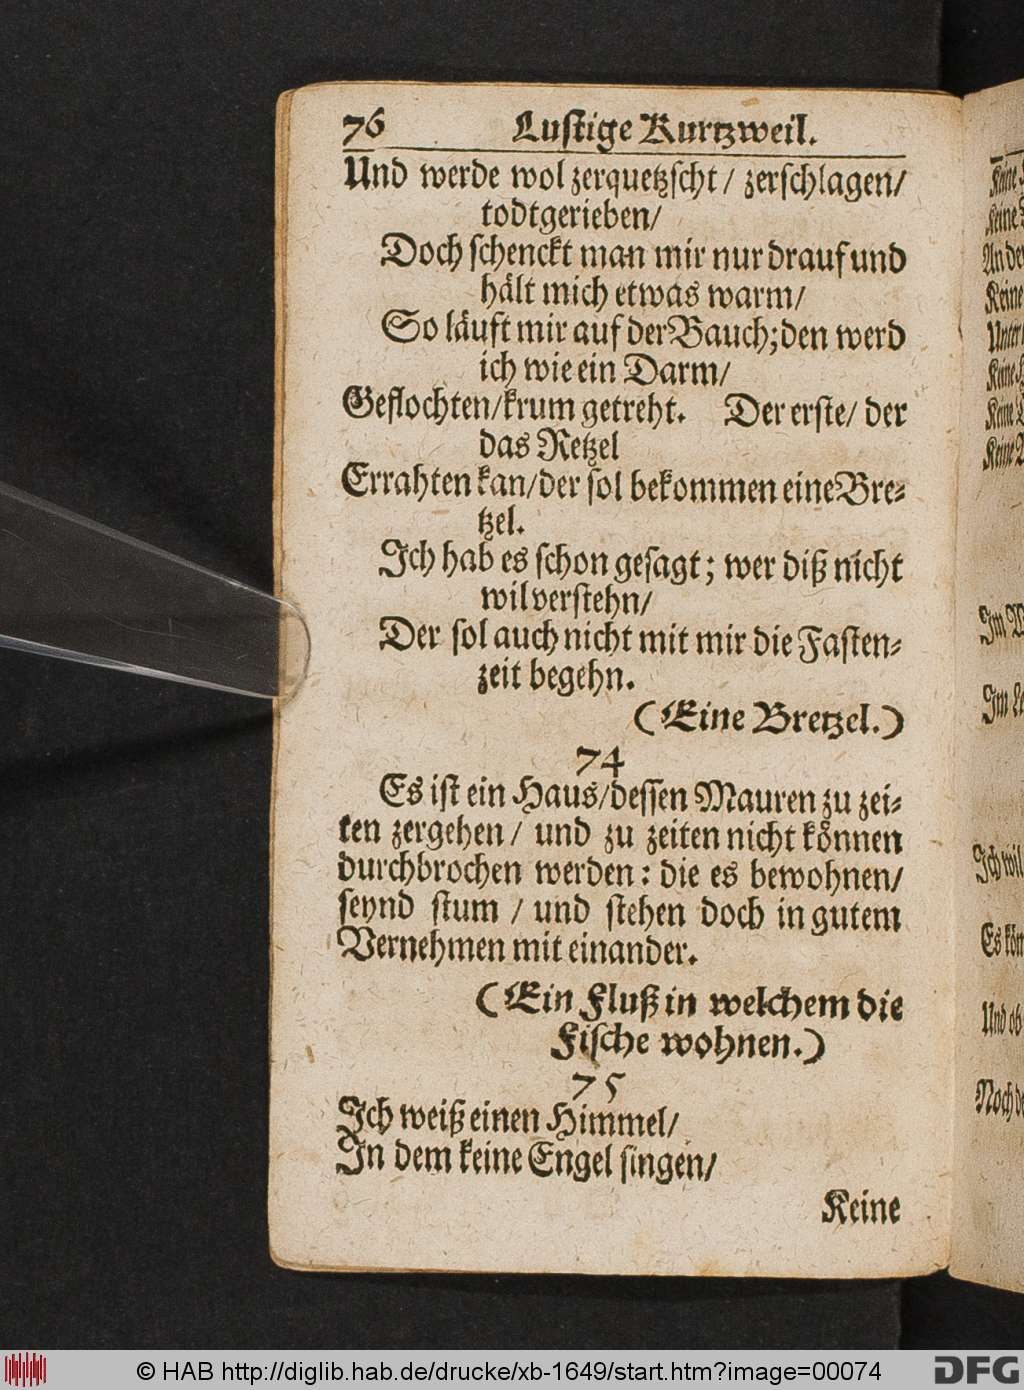 76 Lustige Kurtzweil.
Und werde wol zerquetzscht / zerschlagen/
todtgerieben/
Doch schenckt man mir nur drauf und
hält mich etwas warm/
So läuft mir auf der Bauch; den werd
ich wie ein Darm/
Geflochten/krum getreht. Der erste/ der
das Retzel
Errahten kan/der sol bekommen eine Bre-
tzel.
Ich hab es schon gesagt; wer diß nicht
wil verstehn/
Der sol auch nicht mit mir die Fasten-
zeit begehn.
(Eine Bretzel.)
74
Es ist ein Haus/dessen Mauren zu zei-
ten zergehen / und zu zeiten nicht können
durchbrochen werden: die es bewohnen/
seynd stum / und stehen doch in gutem
Vernehmen mit einander.
(Ein Fluß in welchem die
Fische wohnen.)
75
Ich weiß einen Himmel/
In dem keine Engel singen/
Keine
Keine
Keine
Keine
Keine
Keine
Keine
Im
Im
Ich wil
Es kön
Und ob
Noch de
© HAB http://diglib.hab.de/drucke/xb-1649/start.htm?image=00074
DFG